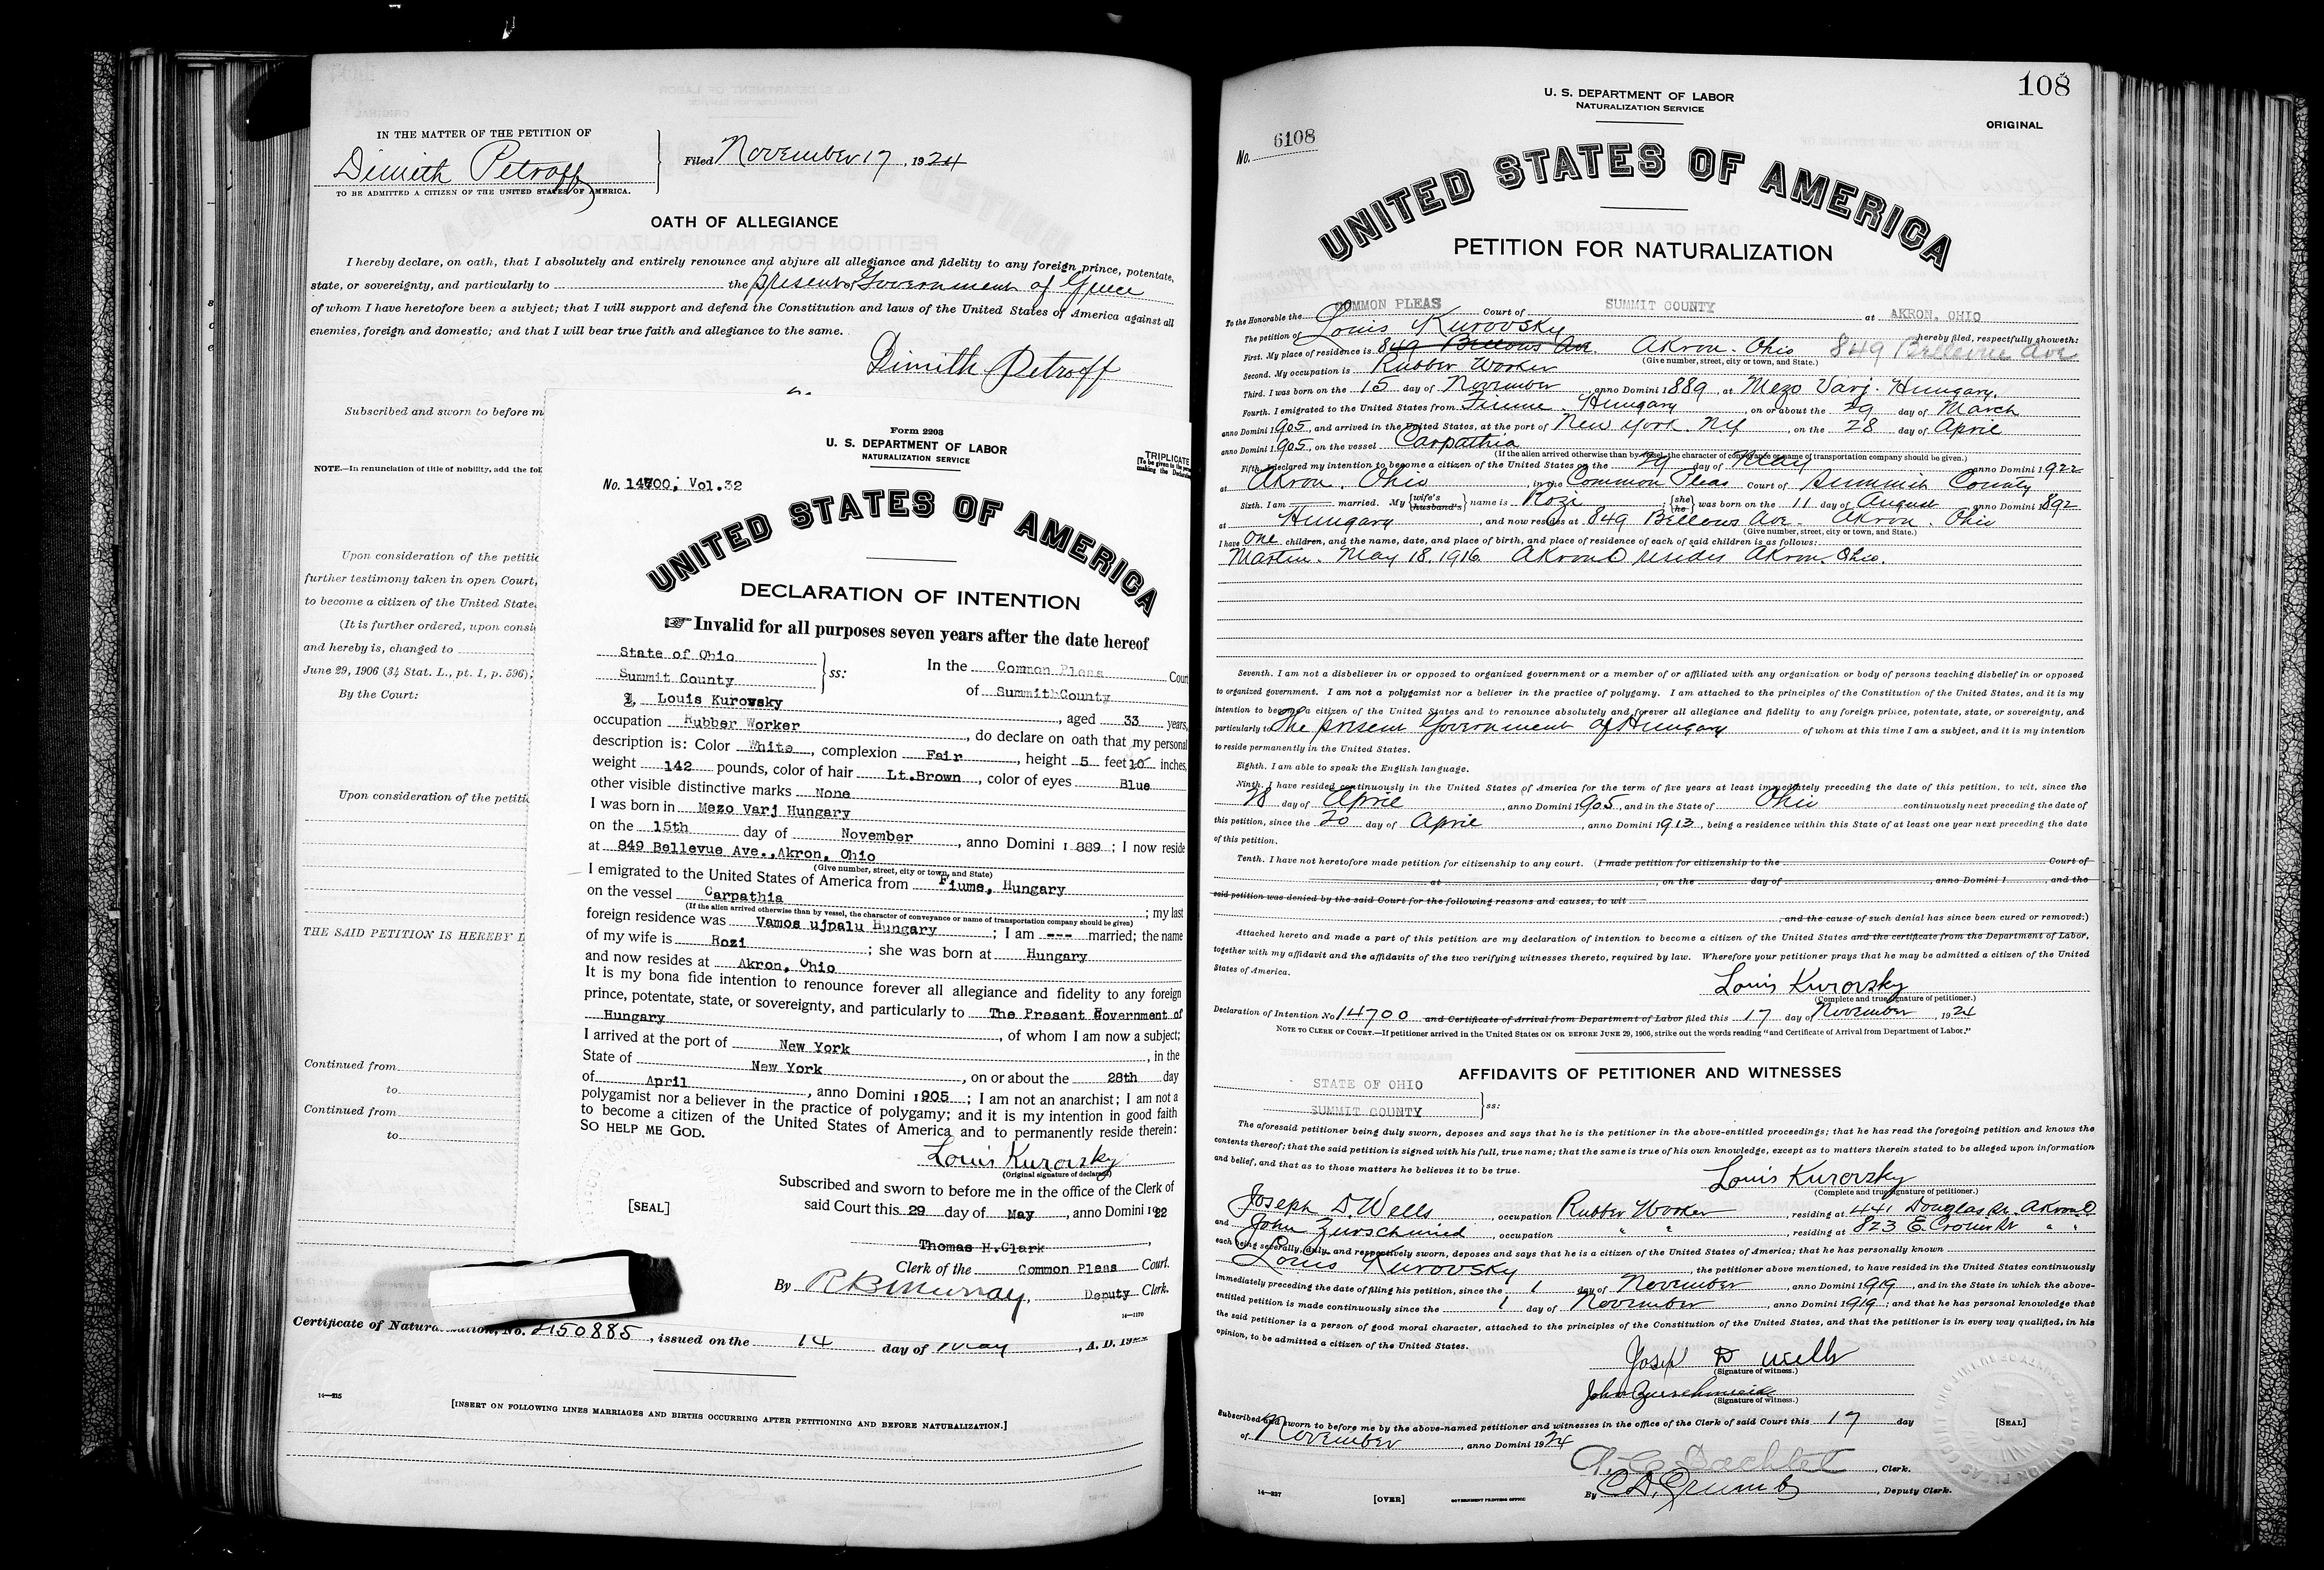 IN THE MATTER OF THE PETITION OF
Dimith Petroff
TO BE ADMITTED A CITIZEN OF THE UNITED STATES OF AMERICA.
Filed November 17, 1924
OATH OF ALLEGIANCE
I hereby declare, on oath, that I absolutely and entirely renounce and abjure all allegiance and fidelity to any foreign prince, potentate,
state, or sovereignty, and particularly to the present Government of Greece
of whom I have heretofore been a subject; that I will support and defend the Constitution and laws of the United States of America against all
enemies, foreign and domestic; and that I will bear true faith and allegiance to the same.
Dimith Petroff
Subscribed and sworn to before m
NOTE.—In renunciation of title of nobility, add the fol
Upon consideration of the petitio
further testimony taken in open Court,
to become a citizen of the United State
(It is further ordered, upon consi
and hereby is, changed to
June 29, 1906 (34 Stat. L., pt. 1, p. 596),
By the Court:
Upon consideration of the petitio
THE SAID PETITION IS HEREBY
Continued from
to
Continued from
to
Certificate of Natura No. 2150885, issued on the 14 day of May, A. D. 192
14—215
[INSERT ON FOLLOWING LINES MARRIAGES AND BIRTHS OCCURRING AFTER PETITIONING AND BEFORE NATURALIZATION.]
Form 2203
U. S. DEPARTMENT OF LABOR
NATURALIZATION SERVICE
TRIPLICATE
[To be given to the
making the Declara
No. 14700, Vol.32
UNITED STATES OF AMERICA
DECLARATION OF INTENTION
☞ Invalid for all purposes seven years after the date hereof
State of Ohio
Summit County ss:
In the Common Pleas Court
of Summit County
I, Louis Kurovsky, aged 33 years,
occupation Rubber Worker, do declare on oath that my personal
description is: Color White, complexion Fair, height 5 feet 10 inches,
weight 142 pounds, color of hair Lt.Brown, color of eyes Blue
other visible distinctive marks None
I was born in Mezo Varj Hungary
on the 15th day of November, anno Domini 1889; I now reside
at 849 Bellevue Ave.,Akron, Ohio
(Give number, street, city or town, and State)
I emigrated to the United States of America from Fiume, Hungary
on the vessel Carpathia; my last
(If the alien arrived otherwise than by vessel, the character of conveyance or name of transportation company should be given)
foreign residence was Vamos ujpalu Hungary; I am --- married; the name
of my wife is Rozi; she was born at Hungary
and now resides at Akron, Ohio
It is my bona fide intention to renounce forever all allegiance and fidelity to any foreign
prince, potentate, state, or sovereignty, and particularly to The Present Government of
Hungary, of whom I am now a subject;
I arrived at the port of New York, in the
State of New York, on or about the 28th day
of April, anno Domini 1905; I am not an anarchist; I am not a
polygamist nor a believer in the practice of polygamy; and it is my intention in good faith
to become a citizen of the United States of America and to permanently reside therein:
SO HELP ME GOD.
Louis Kurovsky
(Original signature of declarant)
Subscribed and sworn to before me in the office of the Clerk of
[SEAL] said Court this 29 day of May, anno Domini 1922
Thomas H.Clark,
Clerk of the Common Pleas Court.
By R B Murray, Deputy Clerk.
14—1170
108
U. S. DEPARTMENT OF LABOR
NATURALIZATION SERVICE
ORIGINAL
No. 6108
UNITED STATES OF AMERICA
PETITION FOR NATURALIZATION
To the Honorable the COMMON PLEAS Court of SUMMIT COUNTY at AKRON, OHIO
The petition of Louis Kurovsky hereby filed, respectfully showeth:
First. My place of residence is 849 Bellows Ave. Akron. Ohio 849 Bellevue Ave
(Give number, street, city or town, and State.)
Second. My occupation is Rubber Worker
Third. I was born on the 15 day of November anno Domini 1889, at Mezo Varj. Hungary.
Fourth. I emigrated to the United States from Fiume. Hungary, on or about the 29 day of March
anno Domini 1905, and arrived in the United States, at the port of New York. N.Y on the 28 day of April
anno Domini 1905, on the vessel Carpathia
(If the alien arrived otherwise than by vessel, the character of conveyance or name of transportation company should be given.)
Fifth. I declared my intention to become a citizen of the United States on the 29 day of May anno Domini 1922
at Akron. Ohio, in the Common Pleas Court of Summit County
Sixth. I am married. My {wife's husband's} name is Rozi; {she he} was born on the 11 day of August anno Domini 1892
at Hungary, and now resides at 849 Bellows Ave. Akron. Ohio
(Give number, street, city or town, and State.)
I have one children, and the name, date, and place of birth, and place of residence of each of said children is as follows:
Martin. May 18. 1916 Akron O resides Akron. Ohio.
Seventh. I am not a disbeliever in or opposed to organized government or a member of or affiliated with any organization or body of persons teaching disbelief in or opposed
to organized government. I am not a polygamist nor a believer in the practice of polygamy. I am attached to the principles of the Constitution of the United States, and it is my
intention to become a citizen of the United States and to renounce absolutely and forever all allegiance and fidelity to any foreign prince, potentate, state, or sovereignty, and
particularly to The present Government of Hungary of whom at this time I am a subject, and it is my intention
to reside permanently in the United States.
Eighth. I am able to speak the English language.
Ninth. I have resided continuously in the United States of America for the term of five years at least immediately preceding the date of this petition, to wit, since the
28 day of April, anno Domini 1905, and in the State of Ohio continuously next preceding the date of
this petition, since the 20 day of April, anno Domini 1913, being a residence within this State of at least one year next preceding the date
of this petition.
Tenth. I have not heretofore made petition for citizenship to any court. (I made petition for citizenship to the Court of
at, on the day of, anno Domini 1, and the
said petition was denied by the said Court for the following reasons and causes, to wit
, and the cause of such denial has since been cured or removed.)
Attached hereto and made a part of this petition are my declaration of intention to become a citizen of the United States and the certificate from the Department of Labor,
together with my affidavit and the affidavits of the two verifying witnesses thereto, required by law. Wherefore your petitioner prays that he may be admitted a citizen of the United
States of America.
Louis Kurovsky
(Complete and true signature of petitioner.)
Declaration of Intention No 14700 and Certificate of Arrival from Department of Labor filed this 17 day of November, 1924
NOTE TO CLERK OF COURT.—If petitioner arrived in the United States ON OR BEFORE JUNE 29, 1906, strike out the words reading "and Certificate of Arrival from Department of Labor."
AFFIDAVITS OF PETITIONER AND WITNESSES
STATE OF OHIO
SUMMIT COUNTY ss:
The aforesaid petitioner being duly sworn, deposes and says that he is the petitioner in the above-entitled proceedings; that he has read the foregoing petition and knows the
contents thereof; that the said petition is signed with his full, true name; that the same is true of his own knowledge, except as to matters therein stated to be alleged upon information
and belief, and that as to those matters he believes it to be true.
Louis Kurovsky
(Complete and true signature of petitioner.)
Joseph D. Wells, occupation Rubber Worker, residing at 441 Douglas St. Akron O
and John Zurschmied, occupation " ", residing at 823 E. Crosier St " "
each being severally, duly, and respectively sworn, deposes and says that he is a citizen of the United States of America; that he has personally known
Louis Kurovsky, the petitioner above mentioned, to have resided in the United States continuously
immediately preceding the date of filing his petition, since the 1 day of November, anno Domini 1919, and in the State in which the above-
entitled petition is made continuously since the 1 day of November, anno Domini 1919; and that he has personal knowledge that
the said petitioner is a person of good moral character, attached to the principles of the Constitution of the United States, and that the petitioner is in every way qualified, in his
opinion, to be admitted a citizen of the United States.
Josep D wells
(Signature of witness.)
John Zurschmied
(Signature of witness.)
Subscribed and sworn to before me by the above-named petitioner and witnesses in the office of the Clerk of said Court this 17 day
of November, anno Domini 1924
[SEAL]
Bachtel, Clerk.
By C.D. Grumb, Deputy Clerk.
14—227
[OVER]
GOVERNMENT PRINTING OFFICE